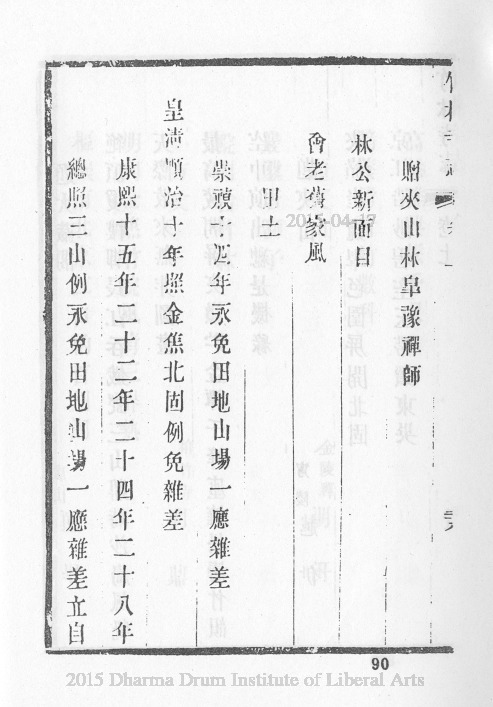 贈夾山林臯豫禪師
林公新面目
喬老舊家風
田土
崇禎十四年永免田地山場一應雜差
皇清順治十年照金焦北固例免雜差
康熙十五年二十二年二十四年二十八年
總照三山例永免田地山場一應雜差立自
90
2015-04-17
2015 Dharma Drum Institute of Liberal Arts